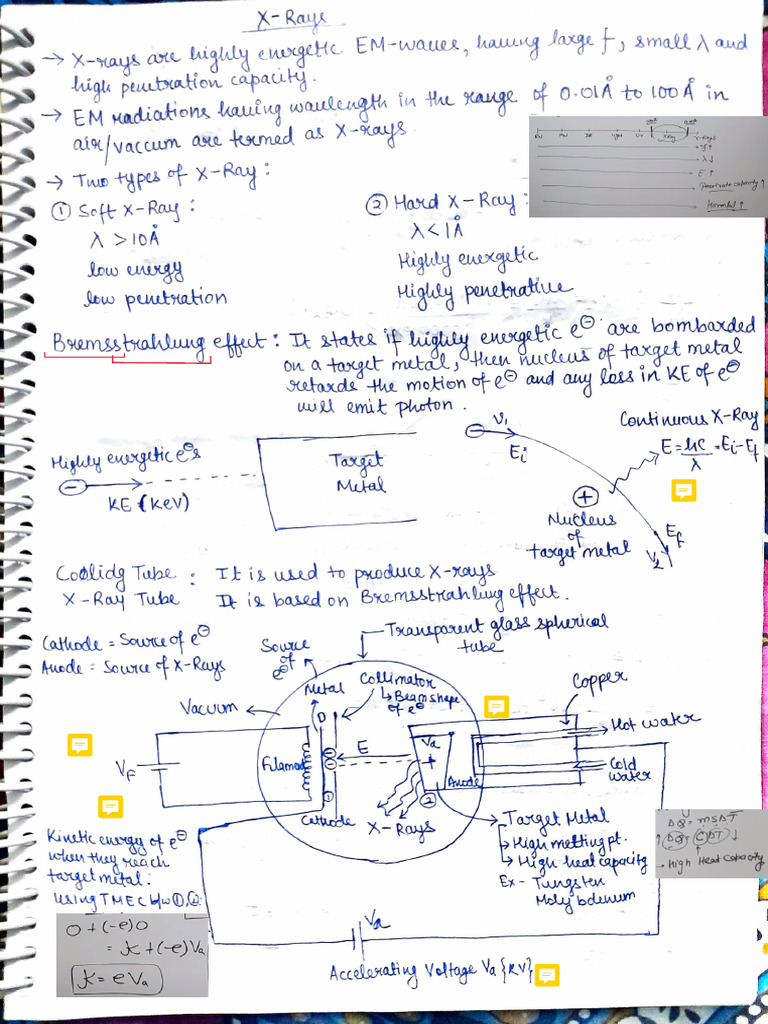 X-Rays
→ X-rays are highly energetic EM-waves, having large f, small λ and
high penetration capacity.
→ EM radiations having wavelength in the range of 0.01Å to 100Å in
air/vaccum are termed as X-rays
→ Two types of X-Ray:
① Soft X-Ray:
λ > 10Å
low energy
low penetration
② Hard X-Ray:
λ < 1Å
Highly energetic
Highly penetrative
RW MW IR UV X-Ray γ-rays
f↑
λ↓
E↑
Penetrate capacity ↑
Harmful ↑
Bremsstrahlung effect: It states if highly energetic e⊖ are bombarded
on a target metal, then nucleus of target metal
retards the motion of e⊖ and any loss in KE of e⊖
will emit photon.
Highly energetic e⊖s
KE (KeV)
Target
Metal
V₁
Eᵢ
Continuous X-Ray
E = hc/λ = Eᵢ - E_f
+
Nucleus
of
target metal
E_f
V₂
Coolidg Tube : It is used to produce X-rays
X-Ray Tube It is based on Bremsstrahlung effect.
Cathode = Source of e⊖
Anode = Source of X-Rays
Source
of
e⊖
Transparent glass spherical
tube
Metal
Collimator
↳ Beam shape
of e⊖
Copper
Vacuum
D
E
Va
+
Hot water
V_F
Filament
Anode
Cold
water
①
②
Cathode
X-Rays
Target Metal
↳ High melting pt.
↳ High heat capacity
Ex - Tungsten
Molybdenum
ΔQ = msΔT
↑ΔQ = CΔT↓
- High Heat Capacity
Kinetic energy of e⊖
when they reach
target metal:
Using TMEC b/w ①, ②:
0 + (-e)0
= K + (-e)Va
K = eVa
Va
Accelerating Voltage Va {kV}